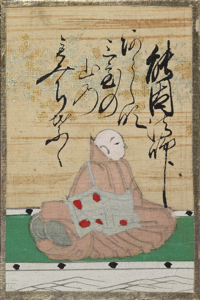 能因法師
あらし吹
三室の
山の
もみちはゝ